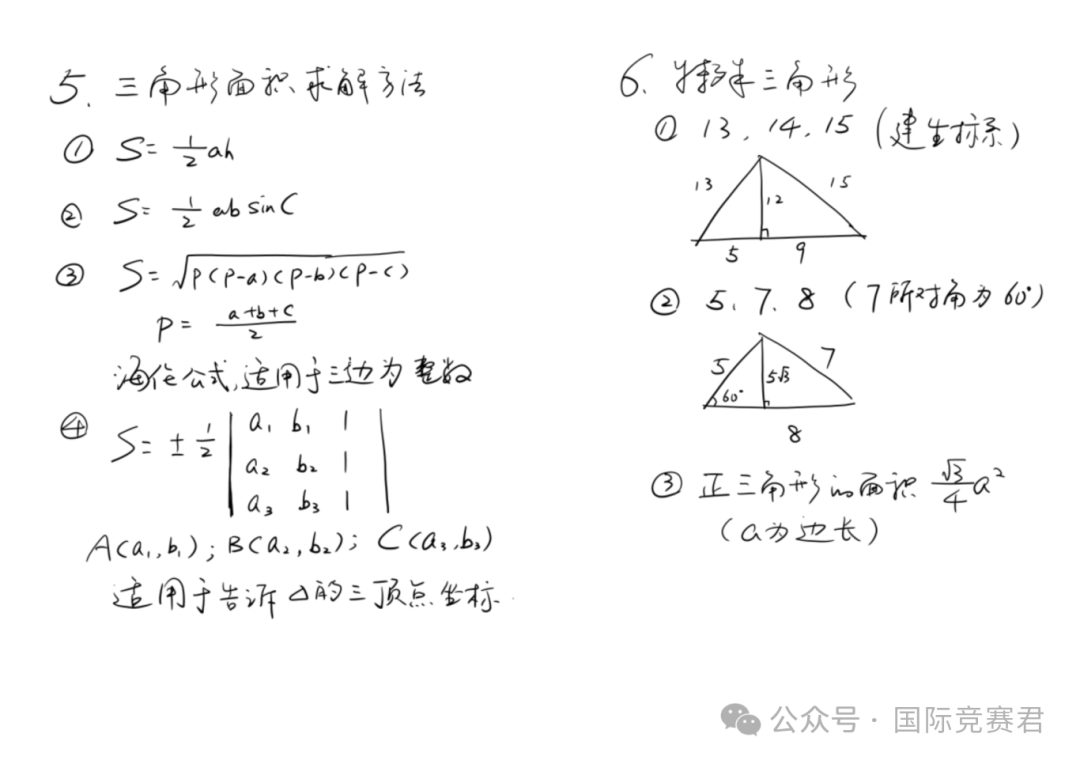 5. 三角形面积求解方法
① S= 1/2 ah
② S= 1/2 ab sinC
③ S= √P(P-a)(P-b)(P-c)
P= a+b+c/2
海伦公式,适用于三边为整数
④ S= ± 1/2 | a₁ b₁ 1 |
a₂ b₂ 1
a₃ b₃ 1
A(a₁,b₁); B(a₂,b₂); C(a₃,b₃)
适用于告诉△的三顶点坐标.
6. 特殊三角形
① 13, 14, 15 (建坐标系)
13 12 15
5 9
② 5, 7, 8 (7所对角为60°)
5 5√3 7
60°
8
③ 正三角形的面积 √3/4 a²
(a为边长)
公众号 · 国际竞赛君